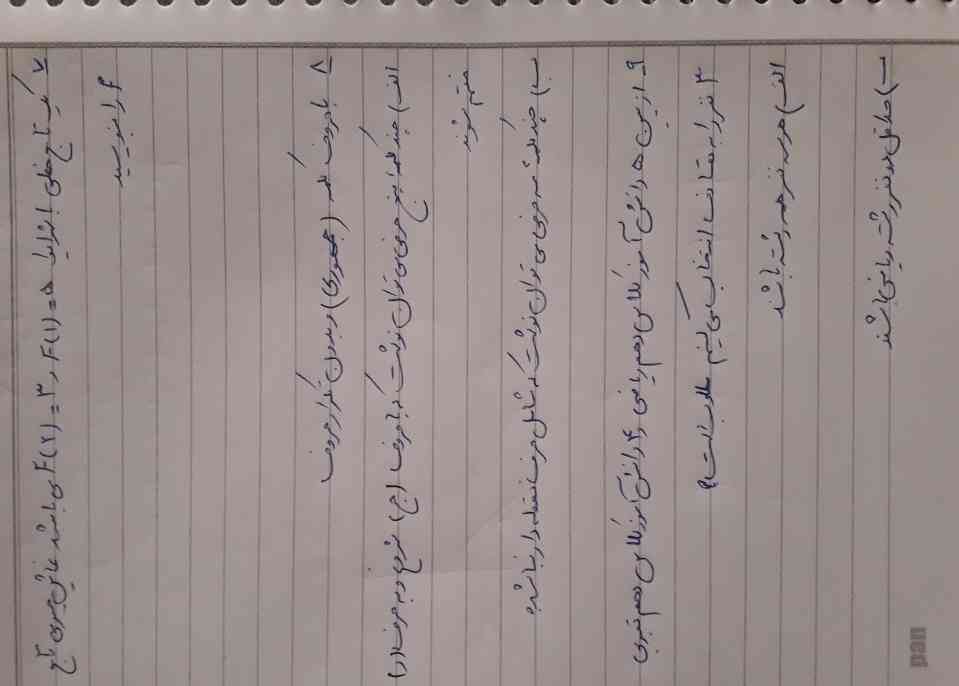 ۷ یک تابع خطی با شرایط F(1)=5 و F(2)=3 می باشد نمایش جبری تابع
F را بنویسید
۸ با حروف کلمه (جمهوری) و بدون تکرار حروف
الف) چند کلمه پنج حرفی می توان نوشت که با حروف (ج) شروع و به حرف (ر)
ختم شود
ب) چند کلمه سه حرفی می توان نوشت که شامل حرف نقطه دار نباشد
۹ از بین ۵ دانش آموز کلاس دهم ریاضی و ۴ دانش آموز کلاس دهم تجربی
۳ نفر را به انتخاب می کنیم مطلوبست؟
الف) هر سه نفر هم رشته باشند
ب) حداقل دو نفر رشته ریاضی باشند
pan